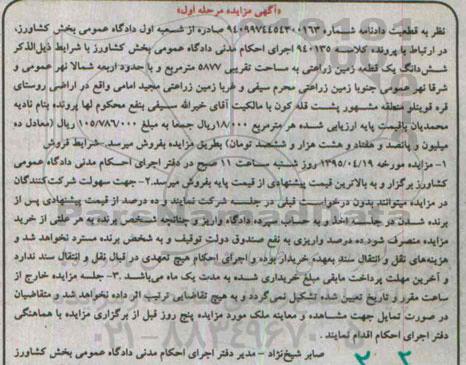 «آگهی مزایده مرحله اول»
نظر به قطعیت دادنامه شماره ۹۴۰۹۹۷۴۴۵۴۳۰۰۱۶۳ صادره از شعبه اول دادگاه عمومی بخش کشاورز،
در ارتباط با پرونده کلاسه ۹۴۰۱۳۵ اجرای احکام مدنی دادگاه عمومی بخش کشاورز با شرایط ذیل‌الذکر
شش‌دانگ یک قطعه زمین زراعتی به مساحت تقریبی ۵۸۷۷ مترمربع و با حدود اربعه شمالا نهر عمومی و
شرقا نهر عمومی جنوبا زمین زراعتی محرم سیفی و غربا زمین زراعتی مجید امامی واقع در اراضی روستای
قره قوینلو منطقه مشهور پشت قله کون با مالکیت آقای خیرالله سیفی بنفع محکوم لها پرونده بنام نادیه
محمدیان باقیمت پایه ارزیابی شده هر مترمربع ۱۸/۰۰۰ریال جمعا به مبلغ ۱۰۵/۷۸۶/۰۰۰ ریال (معادل ده
میلیون و پانصد و هفتاد و هشت هزار و ششصد تومان) بطریق مزایده بفروش میرسد. شرایط فروش
۱-مزایده مورخه ۱۳۹۵/۰۴/۱۹ روز شنبه ساعت ۱۱ صبح در دفتر اجرای احکام مدنی دادگاه عمومی
کشاورز برگزار و به بالاترین قیمت پیشنهادی از قیمت پایه بفروش میرسد.۲- جهت سهولت شرکت‌کنندگان
در مزایده میتوانند بدون درخواست قبلی در جلسه شرکت نمایند و ده درصد از قیمت پیشنهادی پس از
برنده شدن در جلسه اخذ و به حساب سپرده دادگاه واریز و چنانچه شخص برنده به هر علتی از خرید
مزایده منصرف شود ده درصد واریزی به نفع صندوق دولت توقیف و به شخص برنده مسترد نخواهد شد و
هزینه‌های نقل و انتقال سند بعهده خریدار بوده و اجرای احکام هیچ تعهدی در قبال نقل و انتقال سند ندارد
و آخرین مهلت پرداخت مابقی مبلغ خریداری شده به مدت یک ماه می‌باشد. ۳- جلسه مزایده خارج از
ساعت مقرر و تاریخ تعیین شده تشکیل نمی‌گردد و به هیچ تقاضایی ترتیب اثر داده نخواهد شد و متقاضیان
در صورت تمایل جهت مشاهده و معاینه ملک مورد مزایده پنج روز قبل از برگزاری مزایده با هماهنگی
دفتر اجرای احکام اقدام نمایند .
صابر شیخ‌نژاد - مدیر دفتر اجرای احکام مدنی دادگاه عمومی بخش کشاورز
۲۰۲
۰۲۱-۸۸۳۴۹۶۷۰-۵